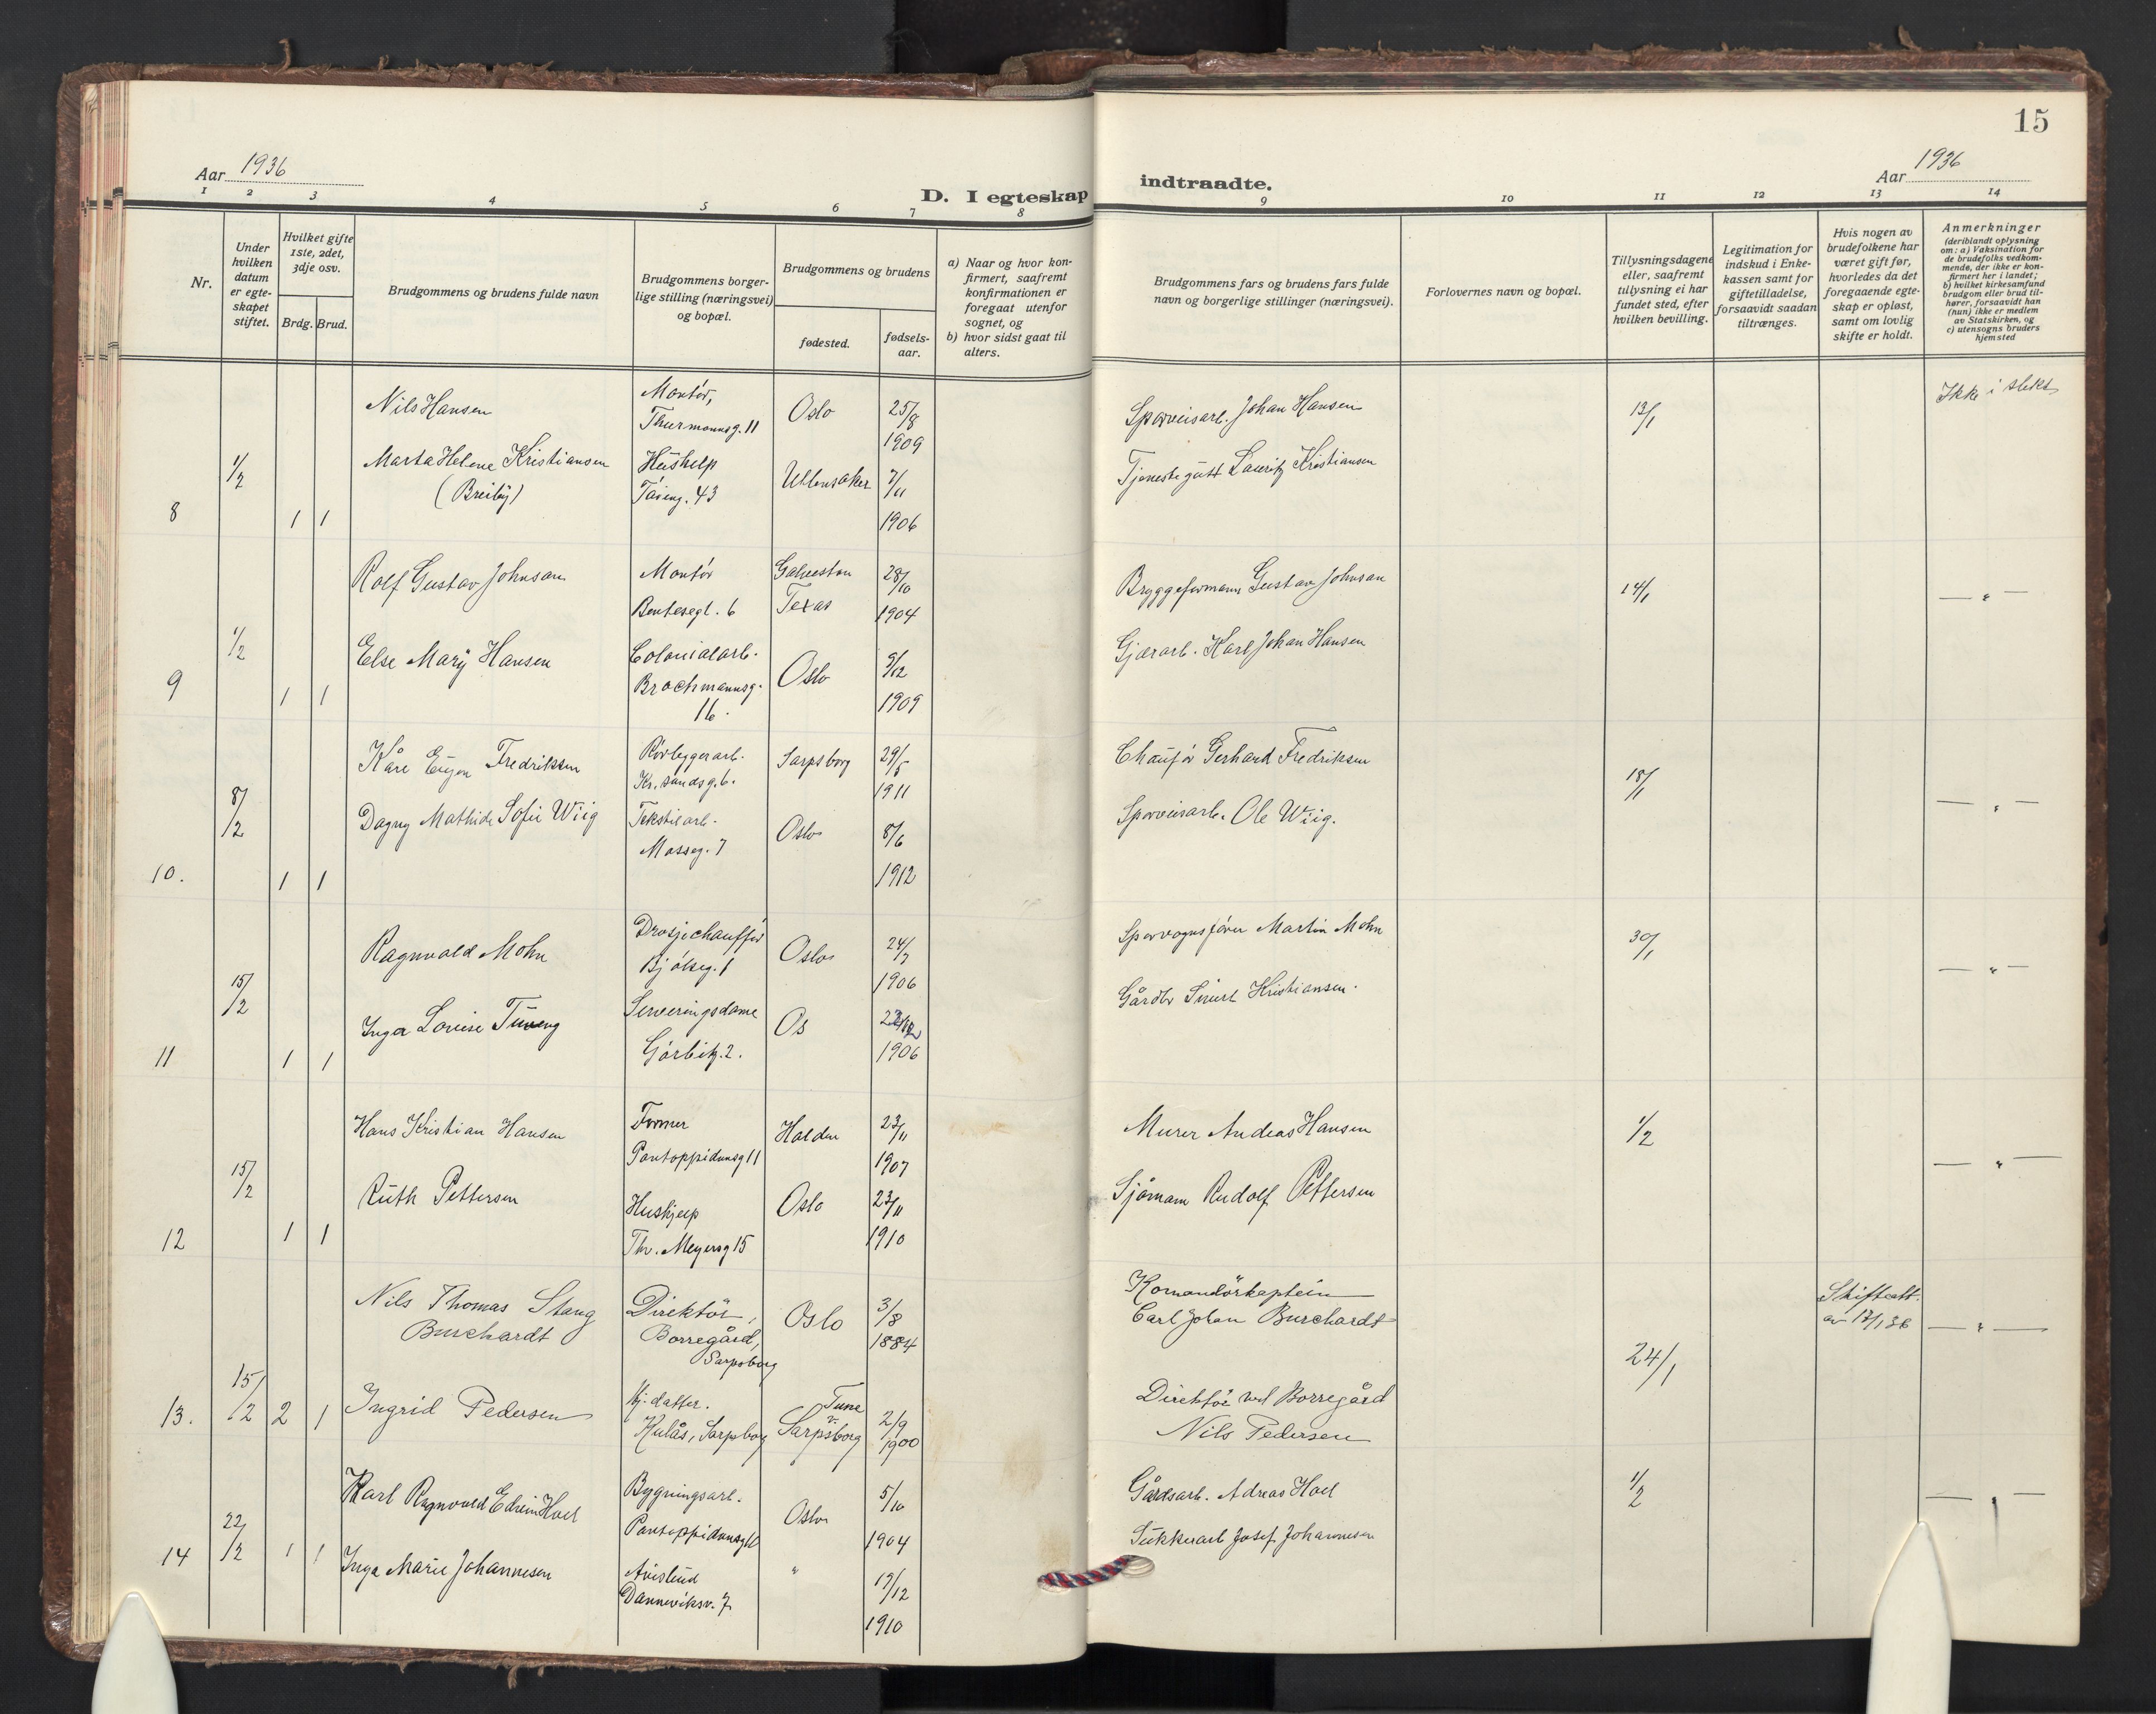 15
Aar 1936
Aar 1936
D. I egteskap indtraadte.
1 2 3 4 5 6 7 8 9 10 11 12 13 14
Nr.
Under hvilken datum er egteskapet stiftet.
Hvilket gifte 1ste, 2det, 3dje osv.
Brdg. Brud.
Brudgommens og brudens fulde navn
Brudgommens borgerlige stilling (næringsvei) og bopæl.
Brudgommens og brudens
fødested.
fødselsaar.
a) Naar og hvor konfirmert, saafremt konfirmationen er foregaat utenfor sognet, og
b) hvor sidst gaat til alters.
Brudgommens fars og brudens fars fulde navn og borgerlige stillinger (næringsvei).
Forlovernes navn og bopæl.
Tillysningsdagene eller, saafremt tillysning ei har fundet sted, efter hvilken bevilling.
Legitimation for indskud i Enkekassen samt for giftetilladelse, forsaavidt saadan tiltrænges.
Hvis nogen av brudefolkene har været gift før, hvorledes da det foregaaende egteskap er opløst, samt om lovlig skifte er holdt.
Anmerkninger
(deriblandt oplysning om: a) Vaksination for de brudefolks vedkommende, der ikke er konfirmert her i landet; b) hvilket kirkesamfund brudgom eller brud tilhører, forsaavidt han (hun) ikke er medlem av Statskirken, og c) utensogns bruders hjemsted
8 1/2 1 1
Nils Hansen Montør, Thurmannsg. 11 Oslo 25/8 1909 Sporveisarb. Johan Hansen 13/1 Ikke i slekt
Marta Helene Kristiansen (Breiby) Hushelp Tøieng. 43 Ullensaker 7/11 1906 Tjenestegutt Lauritz Kristiansen
9 1/2 1 1
Rolf Gustav Johnsan Montør Bentsegt. 6 Galveston Texas 28/10 1904 Bryggeformann Gustav Johnsan 14/1 — " —
Else Mary Hansen Colonialarb. Brochmannsg. 16. Oslo 9/12 1909 Gjærarb. Karl Johan Hansen
10. 8/2 1 1
Kåre Eugen Fredriksen Rørleggerarb. Kr.sandsg. 6. Sarpsborg 29/5 1911 Chaufør Gerhard Fredriksen 18/1 — " —
Dagny Mathide Sofie Wiig Tekstilarb. Mosseg. 7 Oslo 8/6 1912 Sporveisarb. Ole Wiig.
11 15/2 1 1
Ragnvald Mohn Drosjechauffør Bjølseg. 1 Oslo 24/7 1906 Sporvognsfører Martin Mohn 30/1 — " —
Inga Louise Tuveng Serveringsdame Gørbitz. 2. Os 1906 Gårdbr Kristiansen.
12 15/2 1 1
Hans Kristian Hansen Former Pontoppidansg 11 Halden 23/11 1907 Murer Andeas Hansen 1/2 — " —
Ruth Pettersen Huskjelp Thv. Meyersg 15 Oslo 23/11 1910 Sjømann Rudolf Pettersen
13. 15/2 2 1
Nils Thomas Stang Burchardt Direktör, Borregård, Sarpsborg Oslo 3/8 1884 Komandörkaptein Carl Johan Burchardt 24/1 Skifteatt. av 17/1 36 — " —
Ingrid Pedersen Hj. datter. Kulås, Sarpsborg Tune v. Sarpsborg 2/9 1900 Direktör ved Borregård Nils Pedersen
14 22/2 1 1
Karl Ragnvald Edvin Hoel Bygningsarb. Pontoppidansg 11 Oslo 5/10 1904 Gårdsarb. Adreas Hoel 1/2 — " —
Inga Marie Johannesen Avisbud Danneviksv. 7 " 17/12 1910 Sukkerarb Josef Johannesen